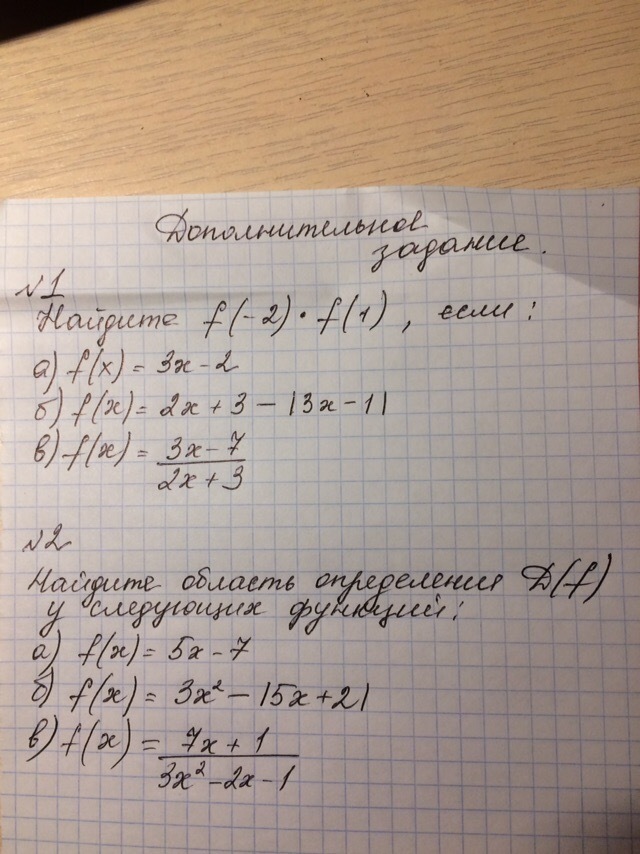 Дополнительное
задание.
№1
Найдите f(-2)·f(1), если:
а) f(x) = 3x-2
б) f(x) = 2x+3-|3x-1|
в) f(x) = \frac{3x-7}{2x+3}
№2
Найдите область определения D(f)
у следующих функций:
а) f(x) = 5x-7
б) f(x) = 3x²-|5x+2|
в) f(x) = \frac{7x+1}{3x²-2x-1}